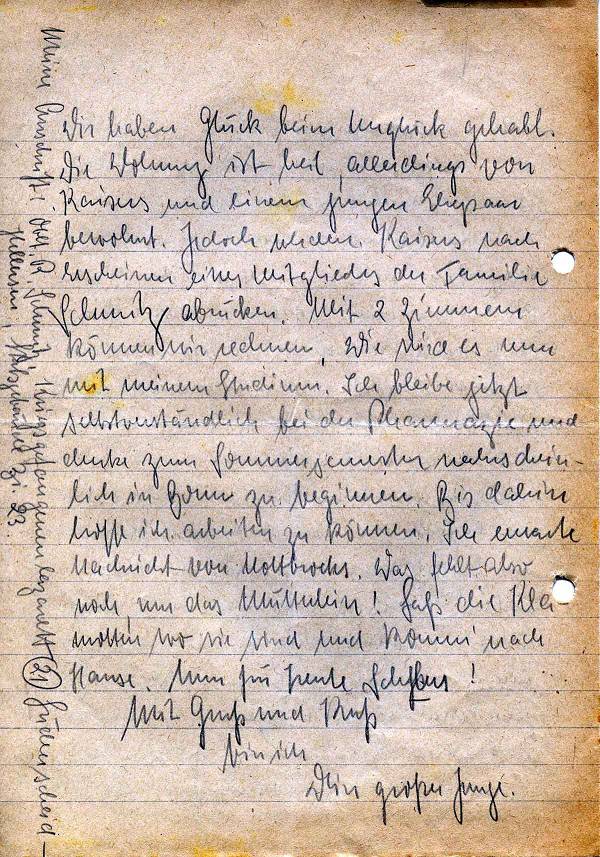 Wir haben Glück beim Unglück gehabt.
Die Wohnung ist heil, allerdings von
Kaisers und einem jungen Ehepaar
bewohnt. Jedoch werden Kaisers nach
Erscheinen eines Mitgliedes der Familie
Schmitz abrücken. Mit 2 Zimmern
können wir rechnen. Wie wird es nun
mit meinem Studium. Ich bleibe jetzt
selbstverständlich bei der Pharmazie und
denke zum Sommersemester wahrschein-
lich in Bonn zu beginnen. Bis dahin
hoffe ich arbeiten zu können. Ich erwarte
Nachricht von Holtbrocks. Was fehlt also
noch, nur das Mütterlein! Laß die Kla-
motten wo sie sind und komm' nach
Hause. Nun für heute Schluss!
Mit Gruß und Kuß
bin ich
Dein großer Junge.
Meine Anschrift: R. Schmitz Kriegsgefangenenlazarett (21) Lüdenscheid-
Hellersen, Zi. 23.